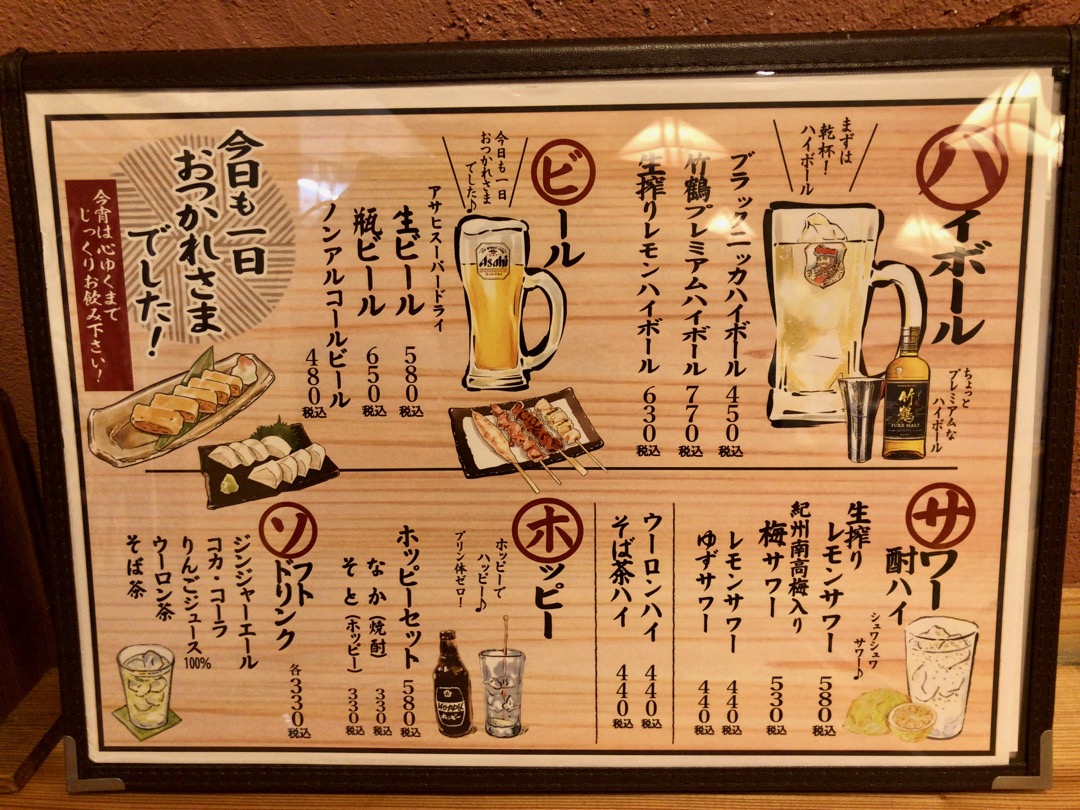 ハイボール
まずは
乾杯！
ハイボール
ちょっと
プレミアムな
ハイボール
竹鶴
PURE MALT
ブラックニッカハイボール 450税込
竹鶴プレミアムハイボール 770税込
生搾りレモンハイボール 630税込
ビール
今日も一日
おつかれさま
でした♪
Asahi
アサヒスーパードライ
生ビール 580税込
瓶ビール 650税込
ノンアルコールビール 480税込
今日も一日
おつかれさま
でした！
今宵は心ゆくまで
じっくりお飲み下さい！
サワー
酎ハイ
シュワシュワ
サワー♪
生搾り
レモンサワー 580税込
紀州南高梅入り
梅サワー 530税込
レモンサワー 440税込
ゆずサワー 440税込
ウーロンハイ 440税込
そば茶ハイ 440税込
ホッピー
ホッピーで
ハッピー♪
プリン体ゼロ！
HOPPY
ホッピー
ホッピーセット 580税込
なか（焼酎） 330税込
そと（ホッピー） 330税込
ソフト
ドリンク
各330税込
ジンジャーエール
コカ・コーラ
りんごジュース100%
ウーロン茶
そば茶